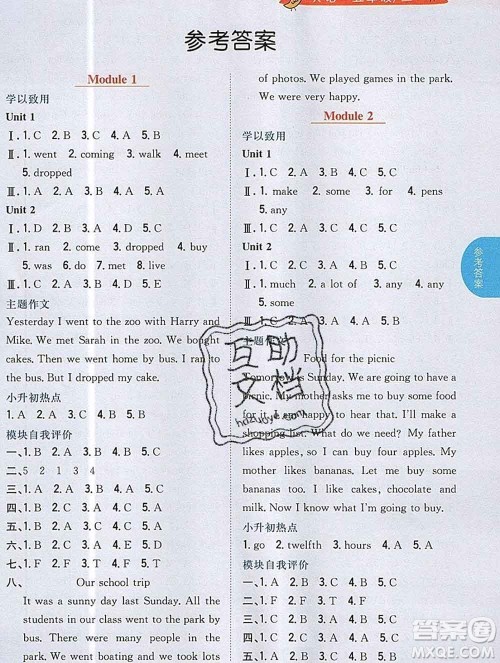 参考答案
Module 1
学以致用
Unit 1
Ⅰ. 1. C 2. B 3. C 4. A 5. C
Ⅱ. 1. went 2. coming 3. walk 4. meet
5. dropped
Ⅲ. 1. C 2. B 3. C 4. A 5. A
Unit 2
Ⅰ. 1. D 2. B 3. C 4. A 5. D
Ⅱ. 1. ran 2. come 3. dropped 4. buy
5. was
Ⅲ. 1. C 2. B 3. A 4. D 5. E
主题作文
Yesterday I went to the zoo with Harry and
Mike. We met Sarah in the zoo. We bought
cakes. Then we went home by bus. I ran to
the bus. But I dropped my cake.
小升初热点
1. A 2. A 3. A 4. C 5. B
模块自我评价
一、1. B 2. A 3. A 4. B 5. C
二、5 2 1 3 4
三、1. C 2. A 3. B 4. A
四、1. C 2. A 3. B 4. B 5. C
五、1. B 2. A 3. A 4. C 5. B
六、1. C 2. B 3. D 4. A 5. E
七、1. B 2. B 3. A 4. B 5. A
八、 Our school trip
It was a sunny day last Sunday. All the
students in our class went to the park by
bus. There were many people in the park.
We went boating and we took lots
of photos. We played games in the park.
We were very happy.
Module 2
学以致用
Unit 1
Ⅰ. 1. C 2. A 3. B 4. C 5. A
Ⅱ. 1. make 2. some 3. for 4. pens
5. any
Ⅲ. 1. C 2. A 3. B 4. C 5. B
Unit 2
Ⅰ. 1. C 2. A 3. B 4. C 5. A
Ⅱ. 1. much 2. a lot of 3. any 4. any
5. some
Ⅲ. 1. B 2. A 3. C 4. A 5. B
主题作文
Food for the picnic
Tomorrow is Sunday. We are going to have a
picnic. My mother asks me to buy some
food for it. I am happy to start making a
shopping list. What do we need? My father
likes apples, so I can buy four apples. My
mother likes bananas. Let me buy some
bananas too! I like cakes, chocolate and
milk. Now I know what I want to buy.
小升初热点
1. go 2. twelfth 3. hours 4. third
模块自我评价
一、1. A 2. A 3. C 4. B 5. C
二、1. B 2. C 3. A 4. C 5. B
三、1. B 2. B 3. A 4. B 5. A
四、1. C 2. A 3. A 4. B 5. C
五、1. B 2. A 3. B 4. A 5. C
参考答案
互助
文档
hazuoye.com
答案圈
MXQE.COM